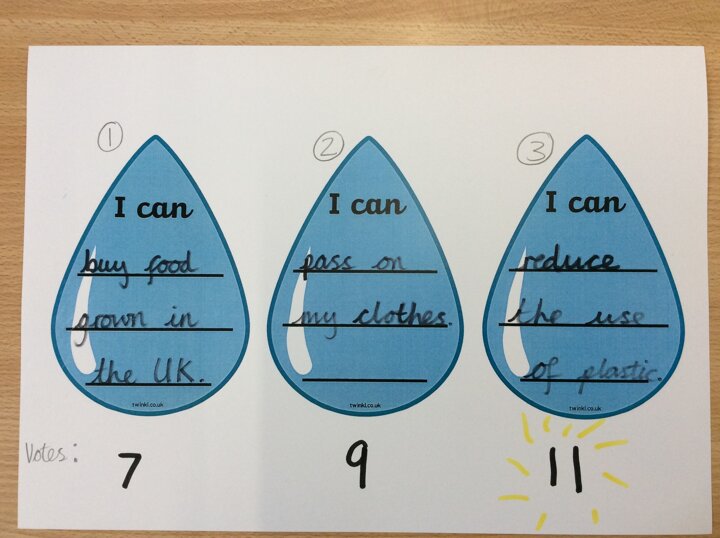 1
I can
buy food
grown in
the UK.
twinkl.co.uk
2
I can
pass on
my clothes.
twinkl.co.uk
3
I can
reduce
the use
of plastic.
twinkl.co.uk
Votes: 7 9 11